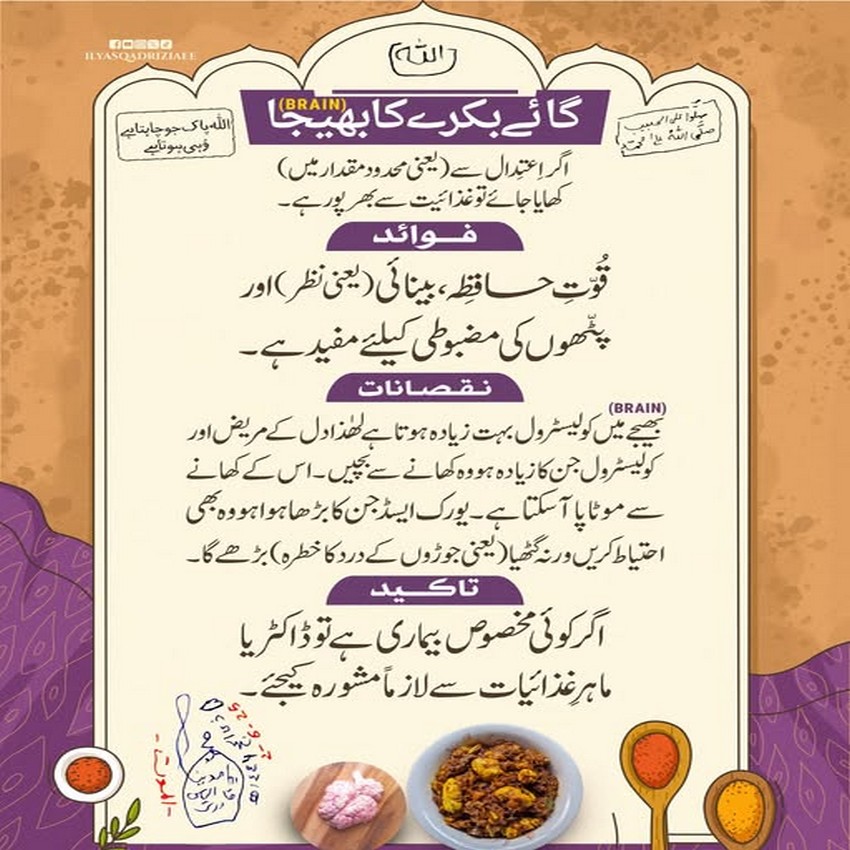 ILYASQADRIZIAEE
اللہ
اللہ پاک جو چاہتا ہے
وہی ہوتا ہے
صلّوا علی الحبیب
صلَّی اللہ علٰی محمّد
گائے بکرے کا بھیجا (BRAIN)
اگر اِعتِدال سے (یعنی محدود مقدار میں)
کھایا جائے تو غذائیت سے بھر پور ہے۔
فوائد
قُوّتِ حافِظہ، بینائی (یعنی نظر) اور
پٹّھوں کی مضبوطی کیلئے مفید ہے۔
نقصانات
(BRAIN)
بھیجے میں کولیسٹرول بہت زیادہ ہوتا ہے لھٰذا دل کے مریض اور
کولیسٹرول جن کا زیادہ ہو وہ کھانے سے بچیں۔ اس کے کھانے
سے موٹاپا آسکتا ہے۔ یورک ایسڈ جن کا بڑھا ہوا ہو وہ بھی
احتیاط کریں ورنہ گٹھیا (یعنی جوڑوں کے درد کا خطرہ) بڑھے گا۔
تاکید
اگر کوئی مخصوص بیماری ہے تو ڈاکٹر یا
ماہرِ غذائیات سے لازماً مشورہ کیجئے۔